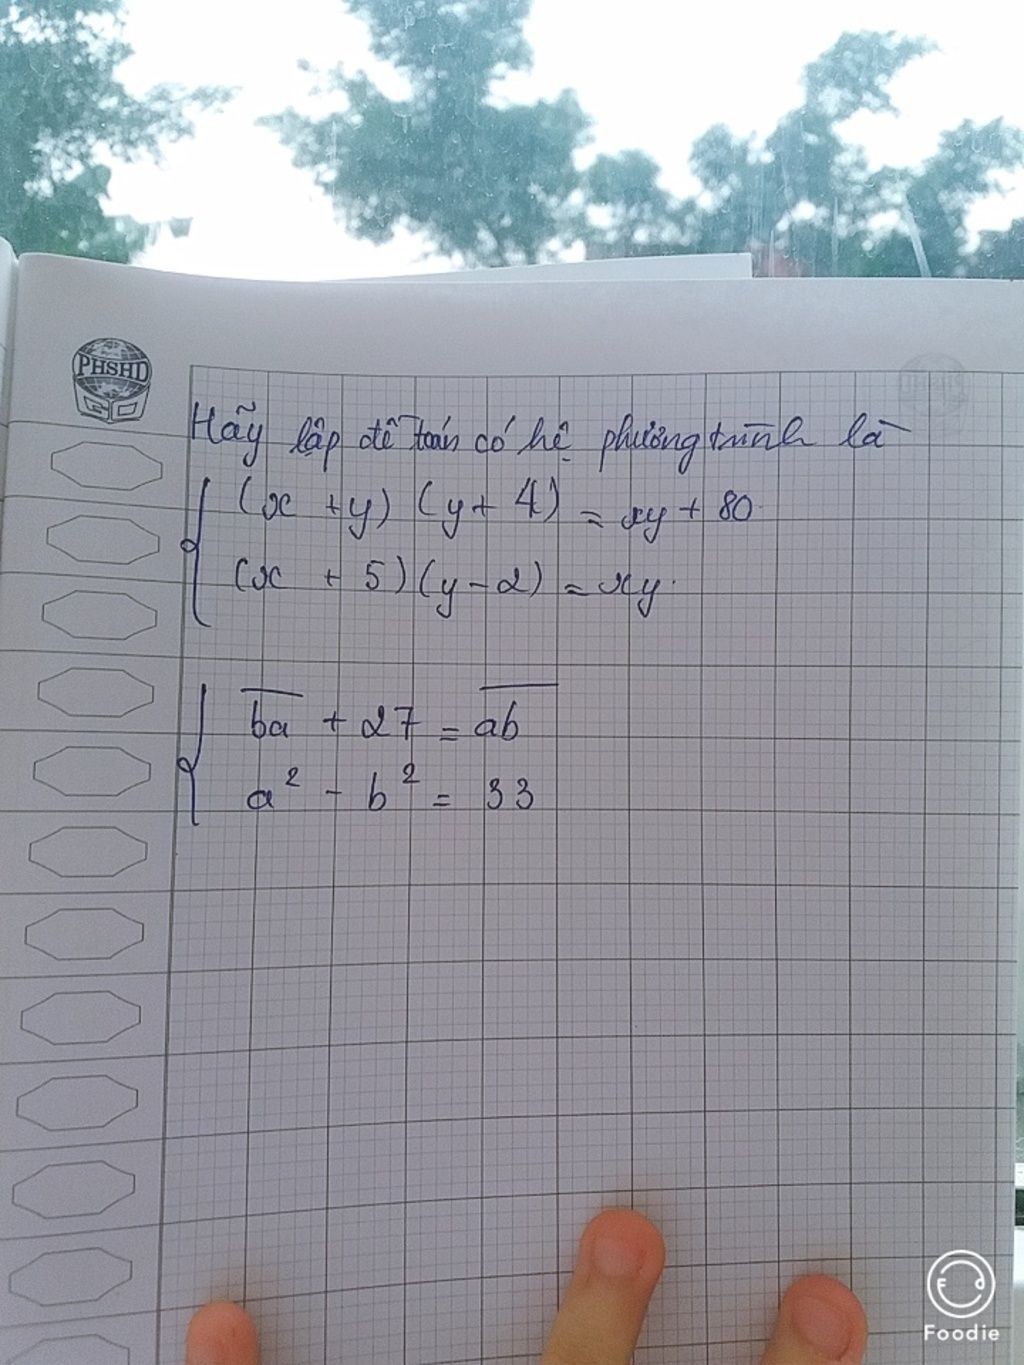 PHSHD
Hãy lập đề toán có hệ phương trình là
(x + y) (y + 4) = xy + 80
(x + 5) (y - 2) = xy.
b̅a̅ + 27 = a̅b̅
a² - b² = 33
Foodie